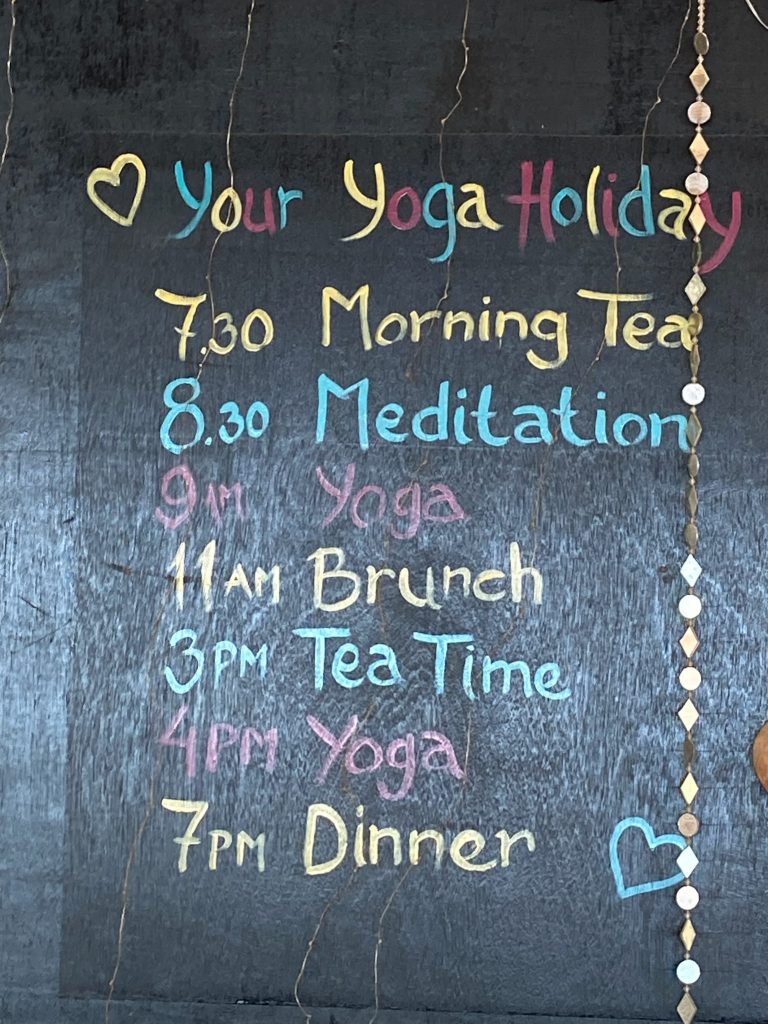 Your Yoga Holiday
7.30 Morning Tea
8.30 Meditation
9AM Yoga
11AM Brunch
3PM Tea Time
4PM Yoga
7PM Dinner